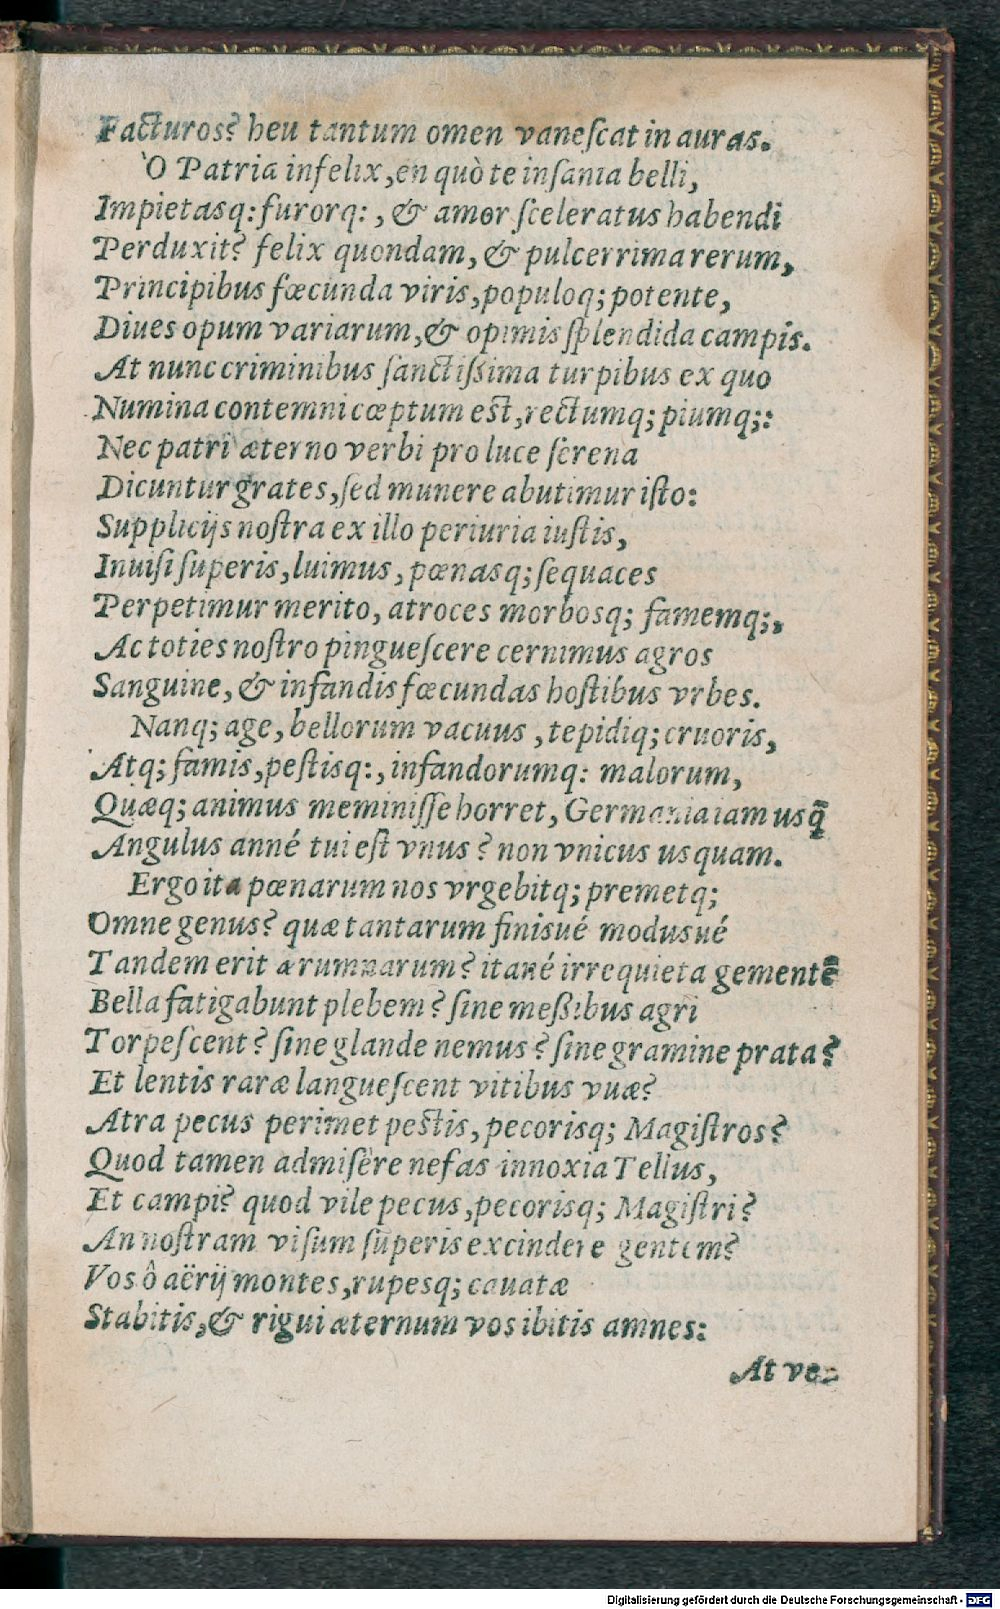 Facturos? heu tantum omen vaneſcat in auras.
O Patria infelix, en quò te inſania belli,
Impietasq: furorq:, & amor ſceleratus habendi
Perduxit? felix quondam, & pulcerrima rerum,
Principibus fœcunda viris, populoq; potente,
Diues opum variarum, & opimis ſplendida campis.
At nunc criminibus ſanctiſsima turpibus ex quo
Numina contemni cœptum est, rectumq; piumq;:
Nec patri æterno verbi pro luce ſerena
Dicuntur grates, ſed munere abutimur iſto:
Supplicijs noſtra ex illo periuria iuſtis,
Inuiſi ſuperis, luimus, pœnasq; ſequaces
Perpetimur merito, atroces morbosq; famemq;,
Ac toties noſtro pingueſcere cernimus agros
Sanguine, & infandis fœcundas hoſtibus vrbes.
Nanq; age, bellorum vacuus, tepidiq; cruoris,
Atq; famis, peſtisq:, infandorumq: malorum,
Quæq; animus meminiſſe horret, Germania iam usq̃
Angulus anné tui eſt vnus? non vnicus usquam.
Ergo ita pœnarum nos vrgebitq; premetq;
Omne genus? quæ tantarum finisué modusué
Tandem erit ærumnarum? itané irrequieta gementē
Bella fatigabunt plebem? ſine meßibus agri
Torpeſcent? ſine glande nemus? ſine gramine prata?
Et lentis raræ langueſcent vitibus vuæ?
Atra pecus perimet pestis, pecorisq; Magiſtros?
Quod tamen admiſère nefas innoxia Tellus,
Et campi? quod vile pecus, pecorisq; Magiſtri?
An noſtram viſum ſuperis excindere gentem?
Vos ô aërij montes, rupesq; cauatæ
Stabitis, & rigui æternum vos ibitis amnes:
At ve-
Digitalisierung gefördert durch die Deutsche Forschungsgemeinschaft - DFG